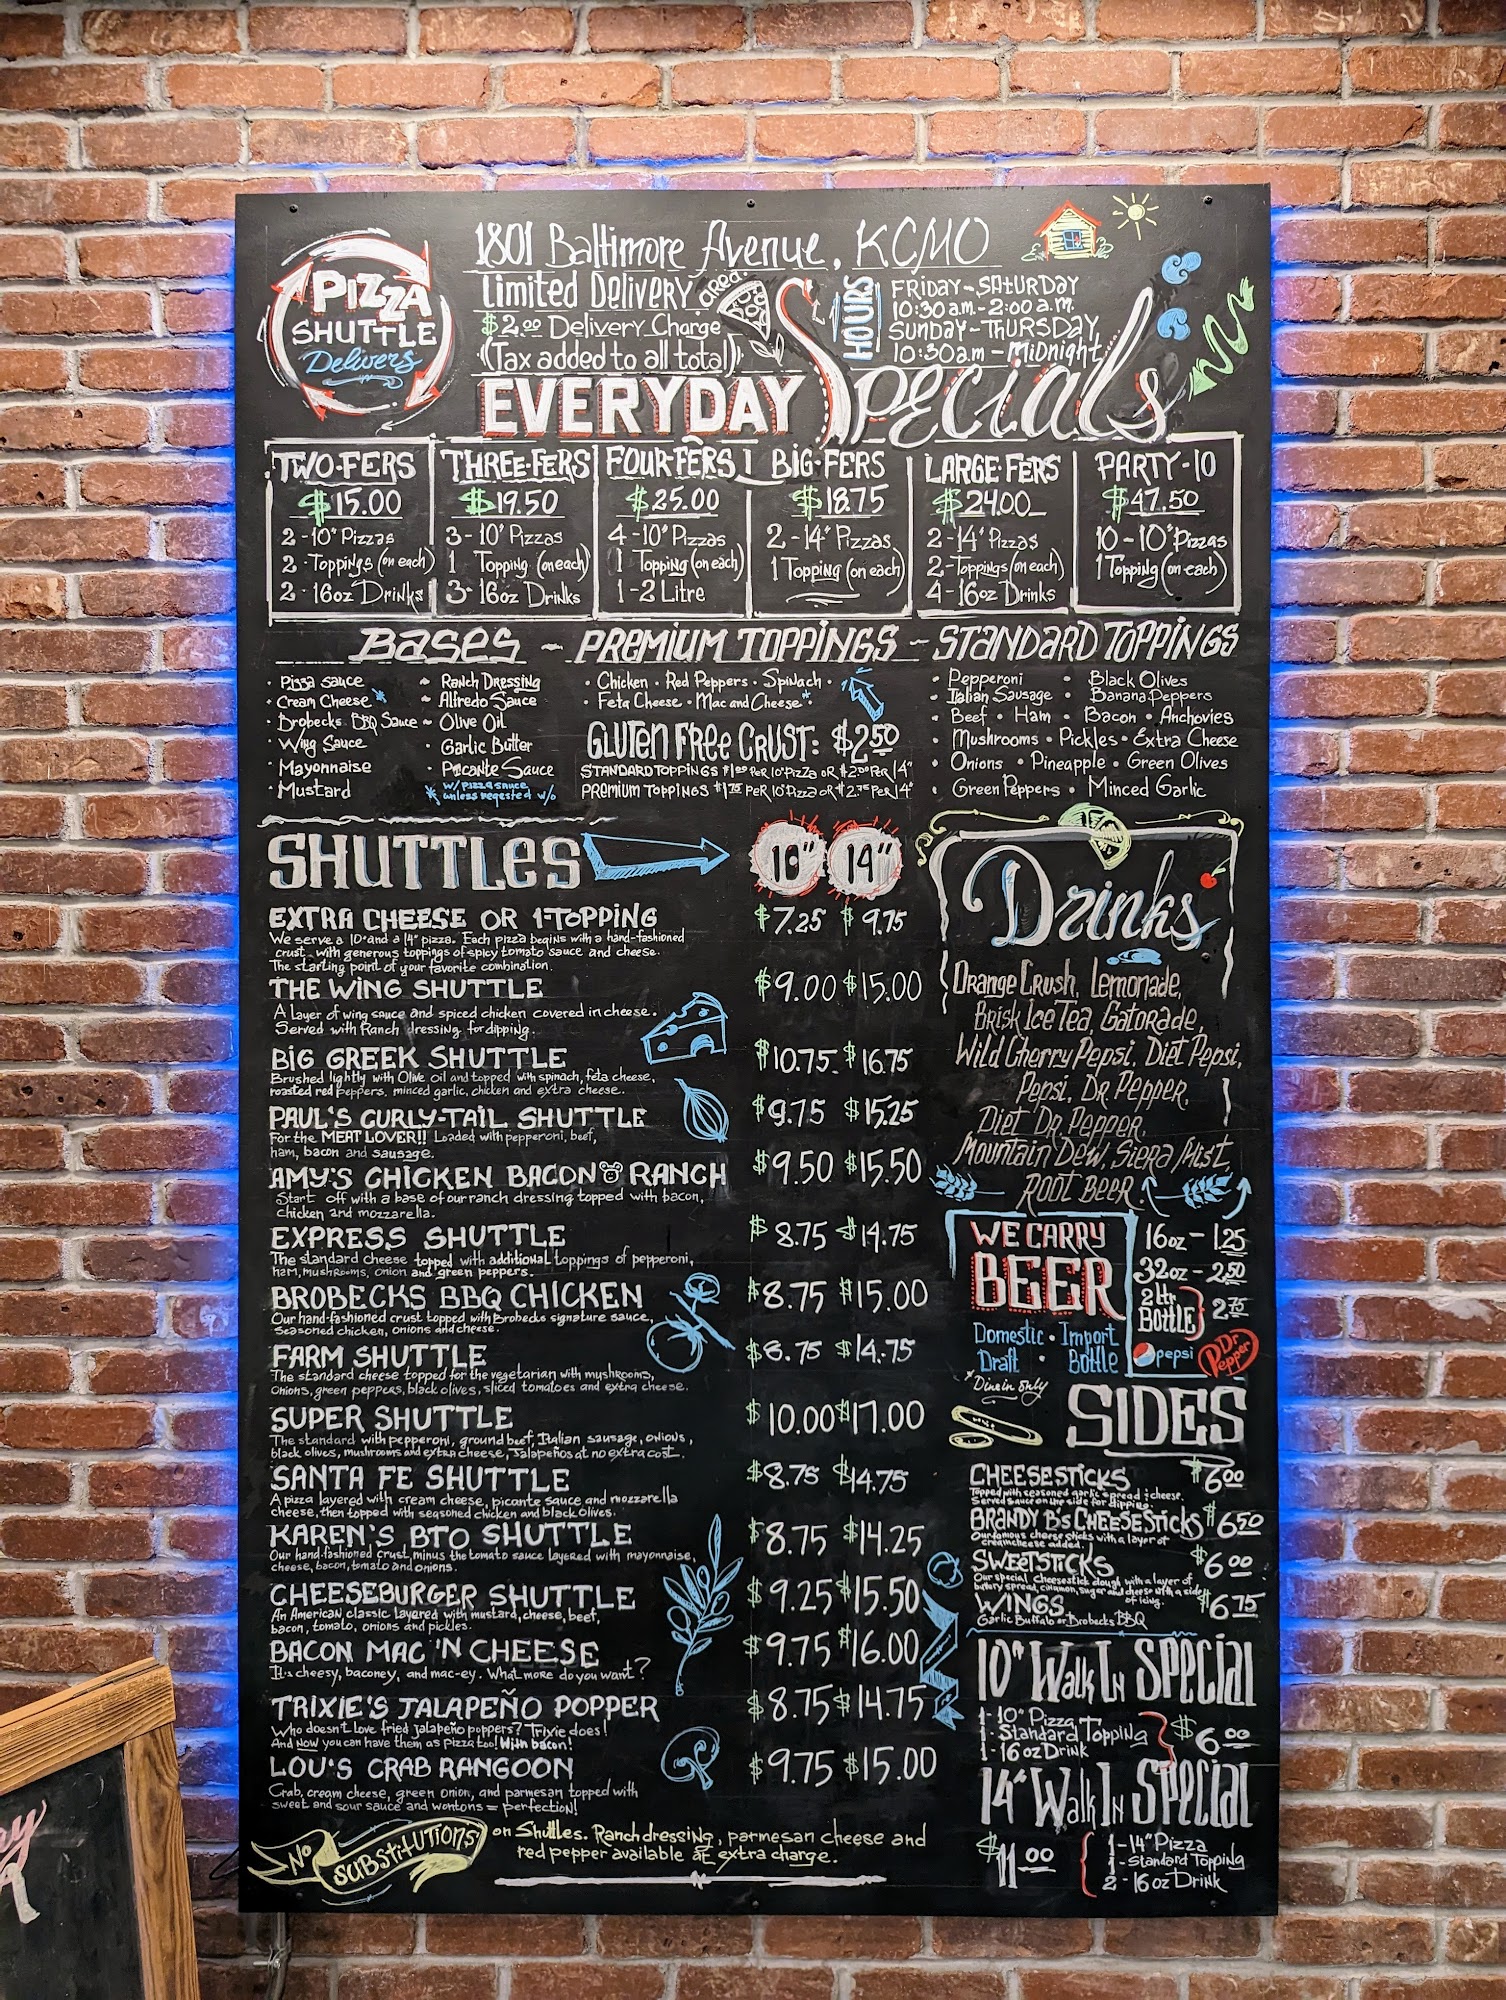 PIZZA
SHUTTLE
Delivers
1801 Baltimore Avenue, KCMO
Limited Delivery area.
$2.00 Delivery Charge
(Tax added to all total)
HOURS
FRIDAY-SATURDAY
10:30 a.m.-2:00 a.m.
SUNDAY-THURSDAY
10:30 a.m - MIDNIGHT
EVERYDAY Specials
TWO-FERS
$15.00
2-10" Pizzas
2-Toppings (on each)
2-16oz Drinks
THREE-FERS
$19.50
3-10" Pizzas
1 Topping (on each)
3-16oz Drinks
FOUR-FERS
$25.00
4-10" Pizzas
1 Topping (on each)
1-2 Litre
BIG-FERS
$18.75
2-14" Pizzas
1 Topping (on each)
LARGE-FERS
$24.00
2-14" Pizzas
2-Toppings (on each)
4-16oz Drinks
PARTY-10
$47.50
10-10" Pizzas
1 Topping (on each)
BASES ~ PREMIUM TOPPINGS ~ STANDARD TOPPINGS
• Pizza sauce
• Cream Cheese *
• Brobecks BBQ Sauce
• Wing Sauce
• Mayonnaise
• Mustard
~ Ranch Dressing
~ Alfredo Sauce
~ Olive Oil
• Garlic Butter
• Pecante Sauce
* w/ Pizza sauce
unless reqested w/o
• Chicken • Red Peppers • Spinach •
• Feta Cheese • Mac and Cheese *
GLUTEN FREE CRUST: $2.50
STANDARD TOPPINGS $1.00 PER 10" PIZZA OR $2.00 PER 14"
PREMIUM TOPPINGS $1.75 PER 10" PIZZA OR $2.75 PER 14"
• Pepperoni • Black Olives
• Italian Sausage • Banana Peppers
• Beef • Ham • Bacon • Anchovies
• Mushrooms • Pickles • Extra Cheese
• Onions • Pineapple • Green Olives
• Green Peppers • Minced Garlic
SHUTTLES 10" 14"
EXTRA CHEESE OR 1-TOPPING $7.25 $9.75
We serve a 10" and a 14" pizza. Each pizza begins with a hand-fashioned
crust, with generous toppings of spicy tomato sauce and cheese.
The starting point of your favorite combination.
THE WING SHUTTLE $9.00 $15.00
A layer of wing sauce and spiced chicken covered in cheese.
Served with Ranch dressing for dipping.
BIG GREEK SHUTTLE $10.75 $16.75
Brushed lightly with Olive oil and topped with spinach, feta cheese,
roasted red peppers, minced garlic, chicken and extra cheese.
PAUL'S CURLY-TAIL SHUTTLE $9.75 $15.25
For the MEAT LOVER!! Loaded with pepperoni, beef,
ham, bacon and sausage.
AMY'S CHICKEN BACON RANCH $9.50 $15.50
Start off with a base of our ranch dressing topped with bacon,
chicken and mozzarella.
EXPRESS SHUTTLE $8.75 $14.75
The standard cheese topped with additional toppings of pepperoni,
ham, mushrooms, onion and green peppers.
BROBECKS BBQ CHICKEN $8.75 $15.00
Our hand-fashioned crust topped with Brobecks signature sauce,
seasoned chicken, onions and cheese.
FARM SHUTTLE $8.75 $14.75
The standard cheese topped for the vegetarian with mushrooms,
onions, green peppers, black olives, sliced tomatoes and extra cheese.
SUPER SHUTTLE $10.00 $17.00
The standard with pepperoni, ground beef, Italian sausage, onions,
black olives, mushrooms and extra cheese, Jalapeños at no extra cost.
SANTA FE SHUTTLE $8.75 $14.75
A pizza layered with cream cheese, picante sauce and mozzarella
cheese, then topped with seasoned chicken and black olives.
KAREN'S BTO SHUTTLE $8.75 $14.25
Our hand-fashioned crust minus the tomato sauce layered with mayonnaise,
cheese, bacon, tomato and onions.
CHEESEBURGER SHUTTLE $9.25 $15.50
An American classic layered with mustard, cheese, beef,
bacon, tomato, onions and pickles.
BACON MAC 'N CHEESE $9.75 $16.00
It's cheesy, baconey, and mac-ey. What more do you want?
TRIXIE'S JALAPEÑO POPPER $8.75 $14.75
Who doesn't love fried jalapeño poppers? Trixie does!
And NOW you can have them as pizza too! With bacon!
LOU'S CRAB RANGOON $9.75 $15.00
Crab, cream cheese, green onion, and parmesan topped with
sweet and sour sauce and wontons = perfection!
NO SUBSTITUTIONS on Shuttles. Ranch dressing, parmesan cheese and
red pepper available at extra charge.
Drinks
Orange Crush, Lemonade,
Brisk Ice Tea, Gatorade,
Wild Cherry Pepsi, Diet Pepsi,
Pepsi, Dr. Pepper,
Diet Dr. Pepper,
Mountain Dew, Siera Mist,
ROOT BEER
WE CARRY
BEER
Domestic • Import
Draft • Bottle
* Dine in only
16oz - 1.25
32oz - 2.50
2ltr. Bottle 2.75
pepsi
Dr Pepper
SIDES
CHEESESTICKS $6.00
Topped with seasoned garlic spread & cheese.
Served sauce on the side for dipping.
BRANDY B'S CHEESE STICKS $6.50
Our famous cheese sticks with a layer of
creamcheese added.
SWEETSTICKS $6.00
Our special cheesestick dough with a layer of
buttery spread, cinnamon, sugar and cheese with a side
of icing.
WINGS $6.75
Garlic Buffalo or Brobecks BBQ
10" Walk In Special
1-10" Pizza
1-Standard Topping
1-16oz Drink
$6.00
14" Walk In Special
$11.00
1-14" Pizza
1-Standard Topping
2-16oz Drink